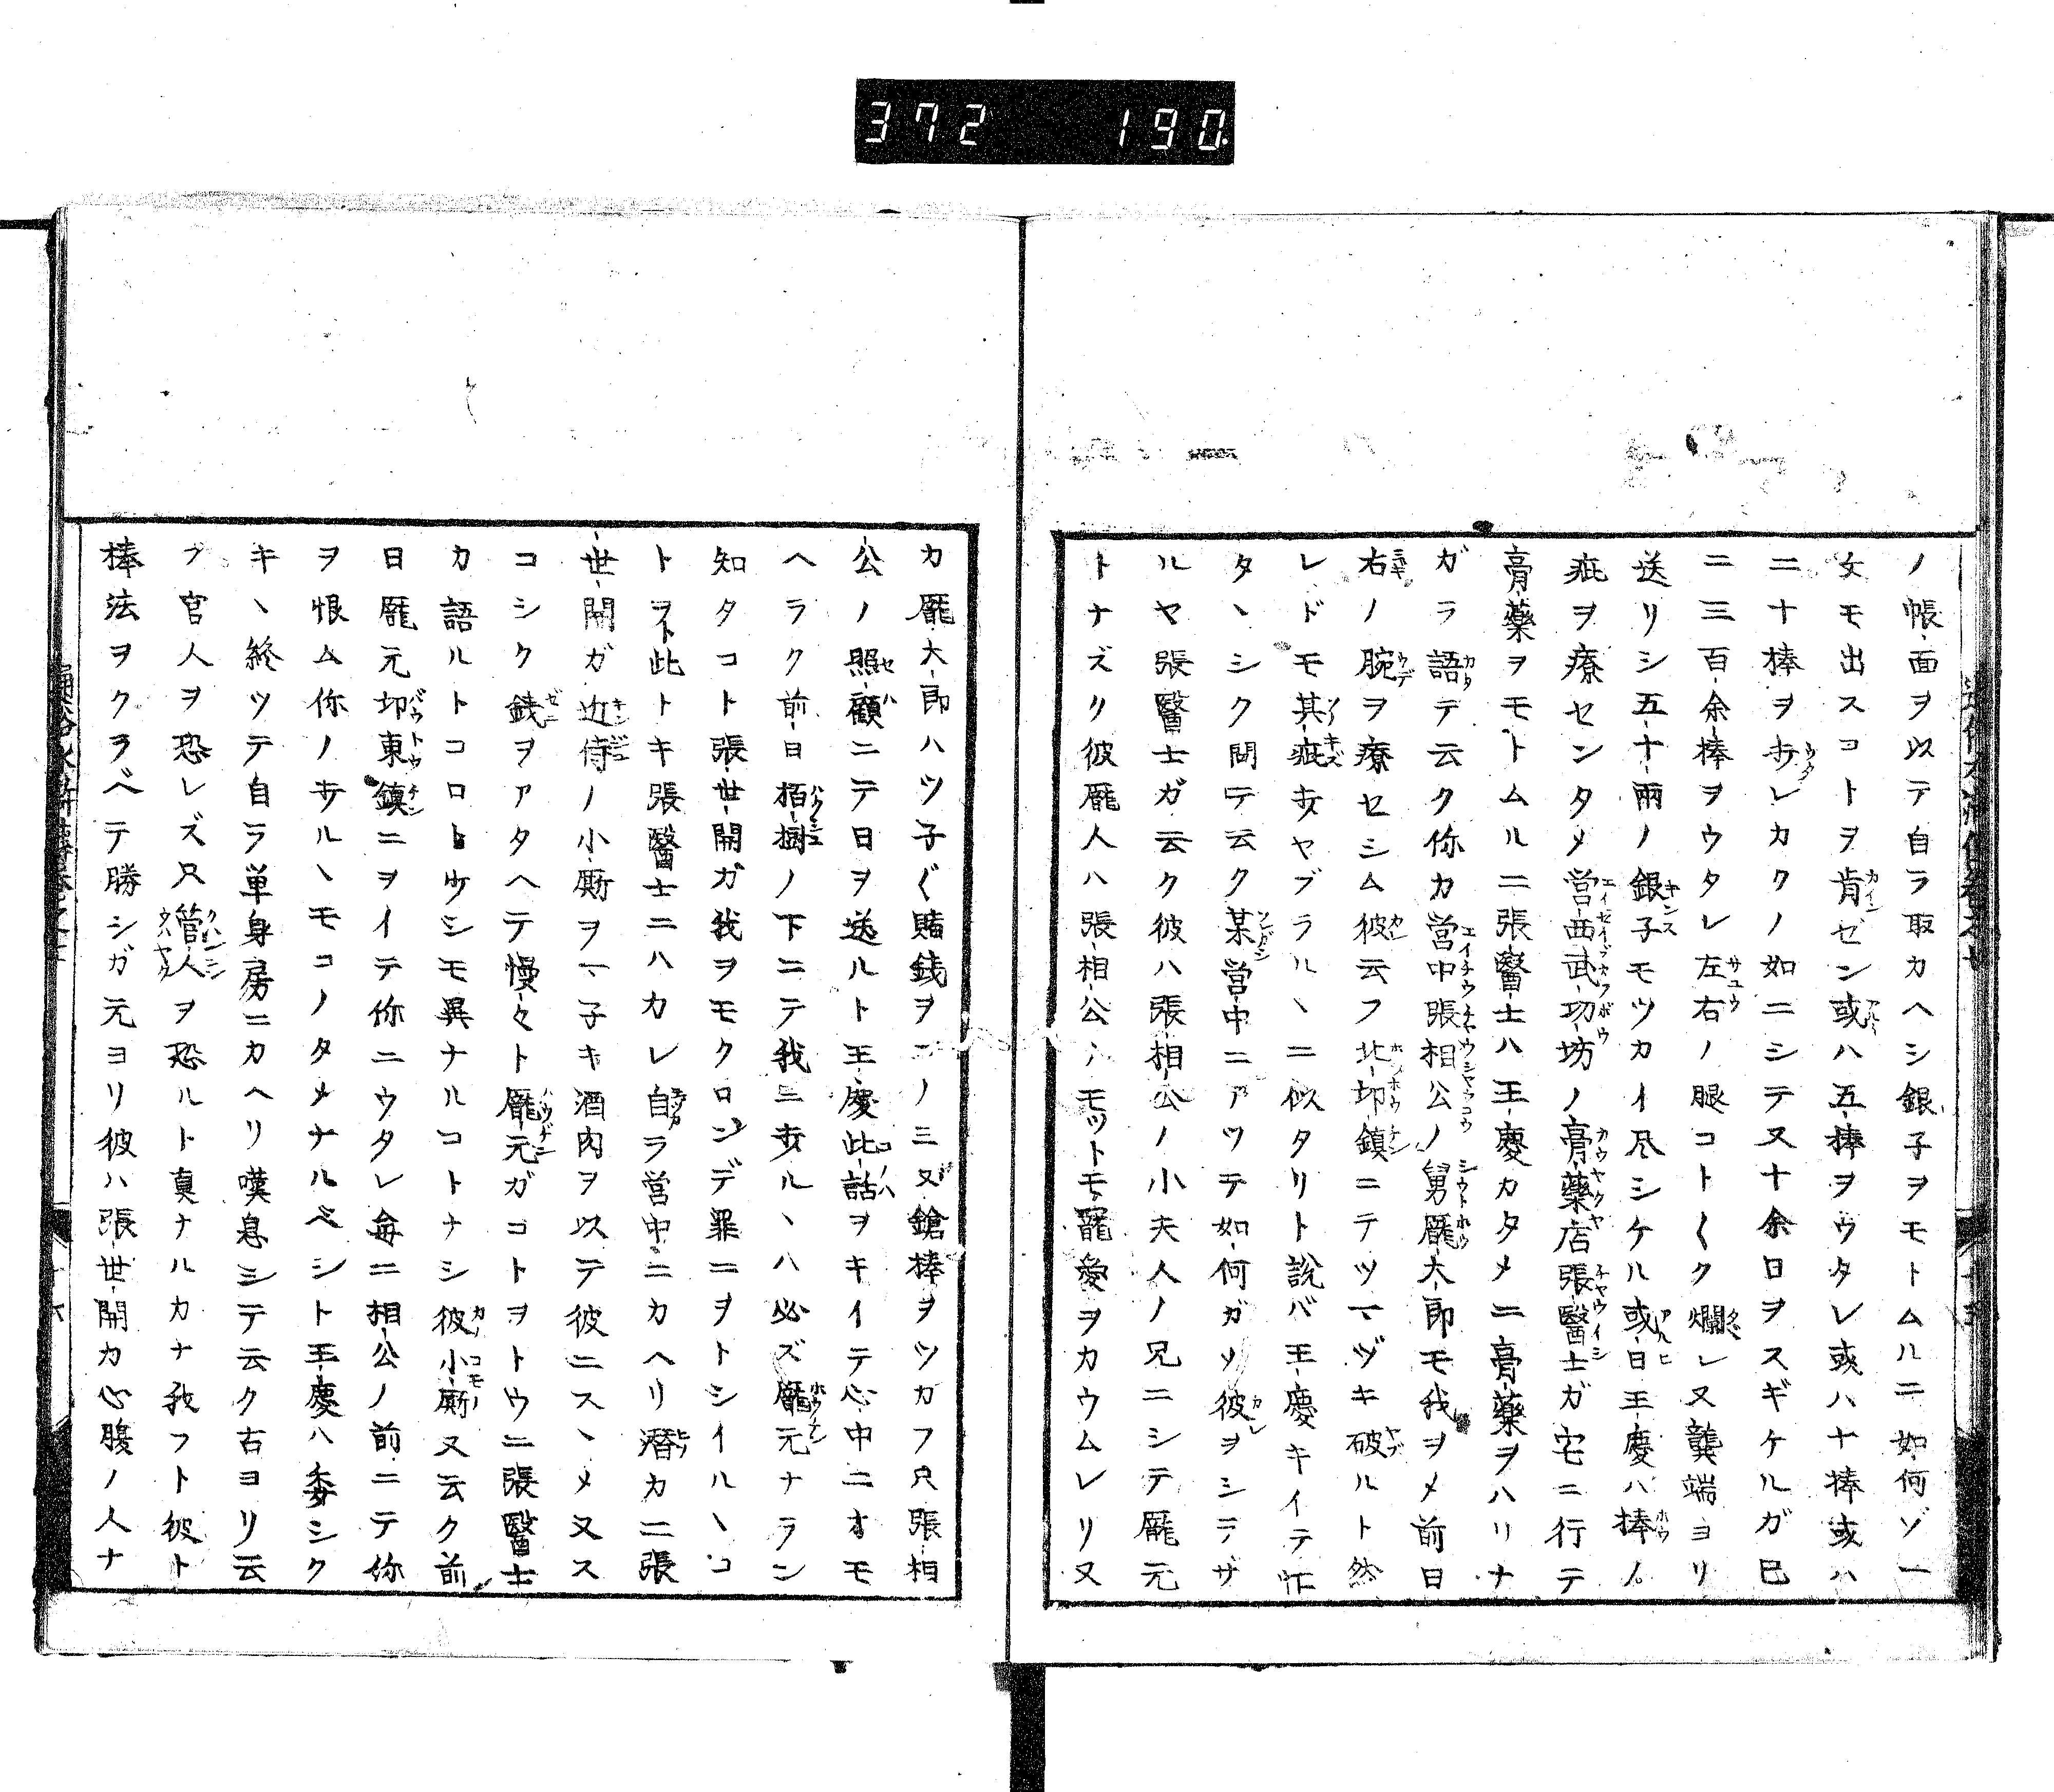 372 190
ノ帳面ヲ以テ自ラ取カヘシ銀子ヲモトムルニ如何ゾ一
女モ出スコトヲ肯ゼン或ハ五棒ヲウタレ或ハ十棒或ハ
二十棒ヲ打レカクノ如ニシテ又十余日ヲスギケルガ已
ニ三百余棒ヲウタレ左右ノ腿コト〱ク爛レ又龔端ヨリ
送リシ五十兩ノ銀子モツカイ尽シケル或日王慶ハ棒ノ
疵ヲ療センタメ営西武功坊ノ膏藥店張醫士ガ宅ニ行テ
膏藥ヲモトムルニ張醫士ハ王慶カタメニ膏藥ヲハリナ
ガラ語テ云ク你カ営中張相公ノ舅龐大郎モ我ヲメ前日
右ノ腕ヲ療セシム彼云フ北邙鎮ニテツマヅキ破ルト然
レドモ其疵打ヤブラルヽニ似タリト説バ王慶キイテ忙
タヽシク問テ云ク某営中ニアツテ如何ガソ彼ヲシラザ
ルヤ張醫士ガ云ク彼ハ張相公ノ小夫人ノ兄ニシテ龐元
トナズク彼龐人ハ張相公ノモツトモ寵愛ヲカウムレリ又
カ龐大郎ハツ子〲賭錢ヲコノミ又鎗棒ヲツカフ只張相
公ノ照顧ニテ日ヲ送ルト王慶此話ヲキイテ心中ニオモ
ヘラク前日栢樹ノ下ニテ我ニ打ルヽハ必ズ龐元ナラン
知タコト張世開ガ我ヲモクロンデ罪ニヲトシイルヽコ
トヲト此トキ張醫士ニハカレ自ラ営中ニカヘリ潜カニ張
世開ガ近侍ノ小厮ヲ一子キ酒肉ヲ以テ彼ニスヽメ又ス
コシク錢ヲアタヘテ慢々ト龐元ガコトヲトウニ張醫士
カ語ルトコロトツシモ異ナルコトナシ彼小厮又云ク前
日龐元邙東鎮ニヲイテ你ニウタレ毎ニ相公ノ前ニテ你
ヲ恨ム你ノ打ルヽモコノタメナルベシト王慶ハ委シク
キヽ終ツテ自ラ単身房ニカヘリ嘆息シテ云ク古ヨリ云
フ官人ヲ恐レズ只管人ヲ恐ルト真ナルカナ我フト彼ト
棒法ヲクラベテ勝シガ元ヨリ彼ハ張世開カ心腹ノ人ナ